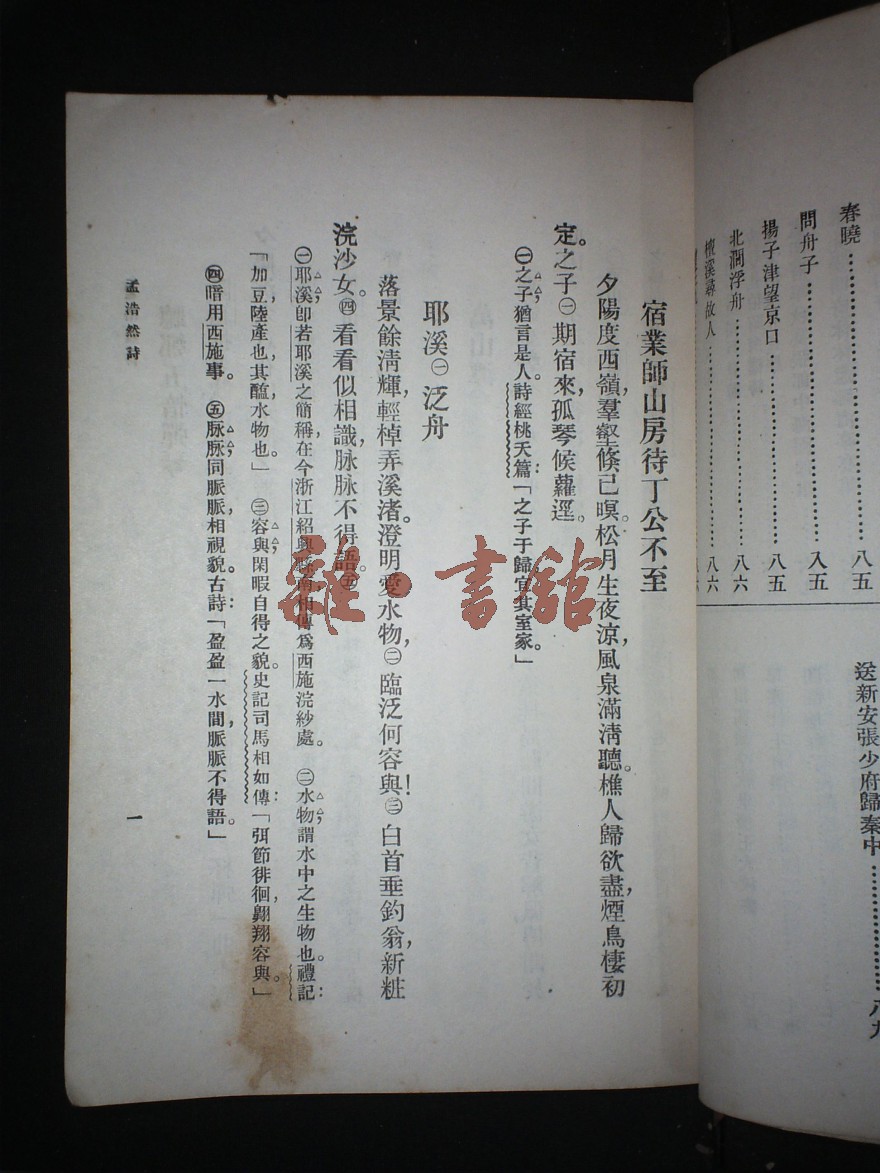 春曉…………八五
問舟子…………入五
揚子津望京口…………八五
北澗浮舟…………八六
檀溪尋故人…………八六
送新安張少府歸秦中…………八九
宿業師山房待丁公不至
夕陽度西嶺，羣壑倏已暝。松月生夜涼，風泉滿淸聽。樵人歸欲盡，煙鳥棲初
定。之子㊀期宿來，孤琴候蘿逕。
㊀之子，猶言是人。詩經桃夭篇：「之子于歸，宜其室家。」
耶溪㊀泛舟
落景餘淸輝，輕棹弄溪渚。澄明愛水物，㊁臨泛何容與！㊂白首垂釣翁，新粧
浣沙女。㊃看看似相識，脉脉不得語。㊄
㊀耶溪，卽若耶溪之簡稱，在今浙江紹興縣南，相傳爲西施浣紗處。　㊁水物，謂水中之生物也。禮記：
「加豆，陸產也，其醢，水物也。」　㊂容與，閑暇自得之貌。史記司馬相如傳：「弭節徘徊，翺翔容與。」
㊃暗用西施事。　㊄脉脉，同脈脈，相視貌。古詩：「盈盈一水間，脈脈不得語。」
孟浩然詩
一
雜·書館